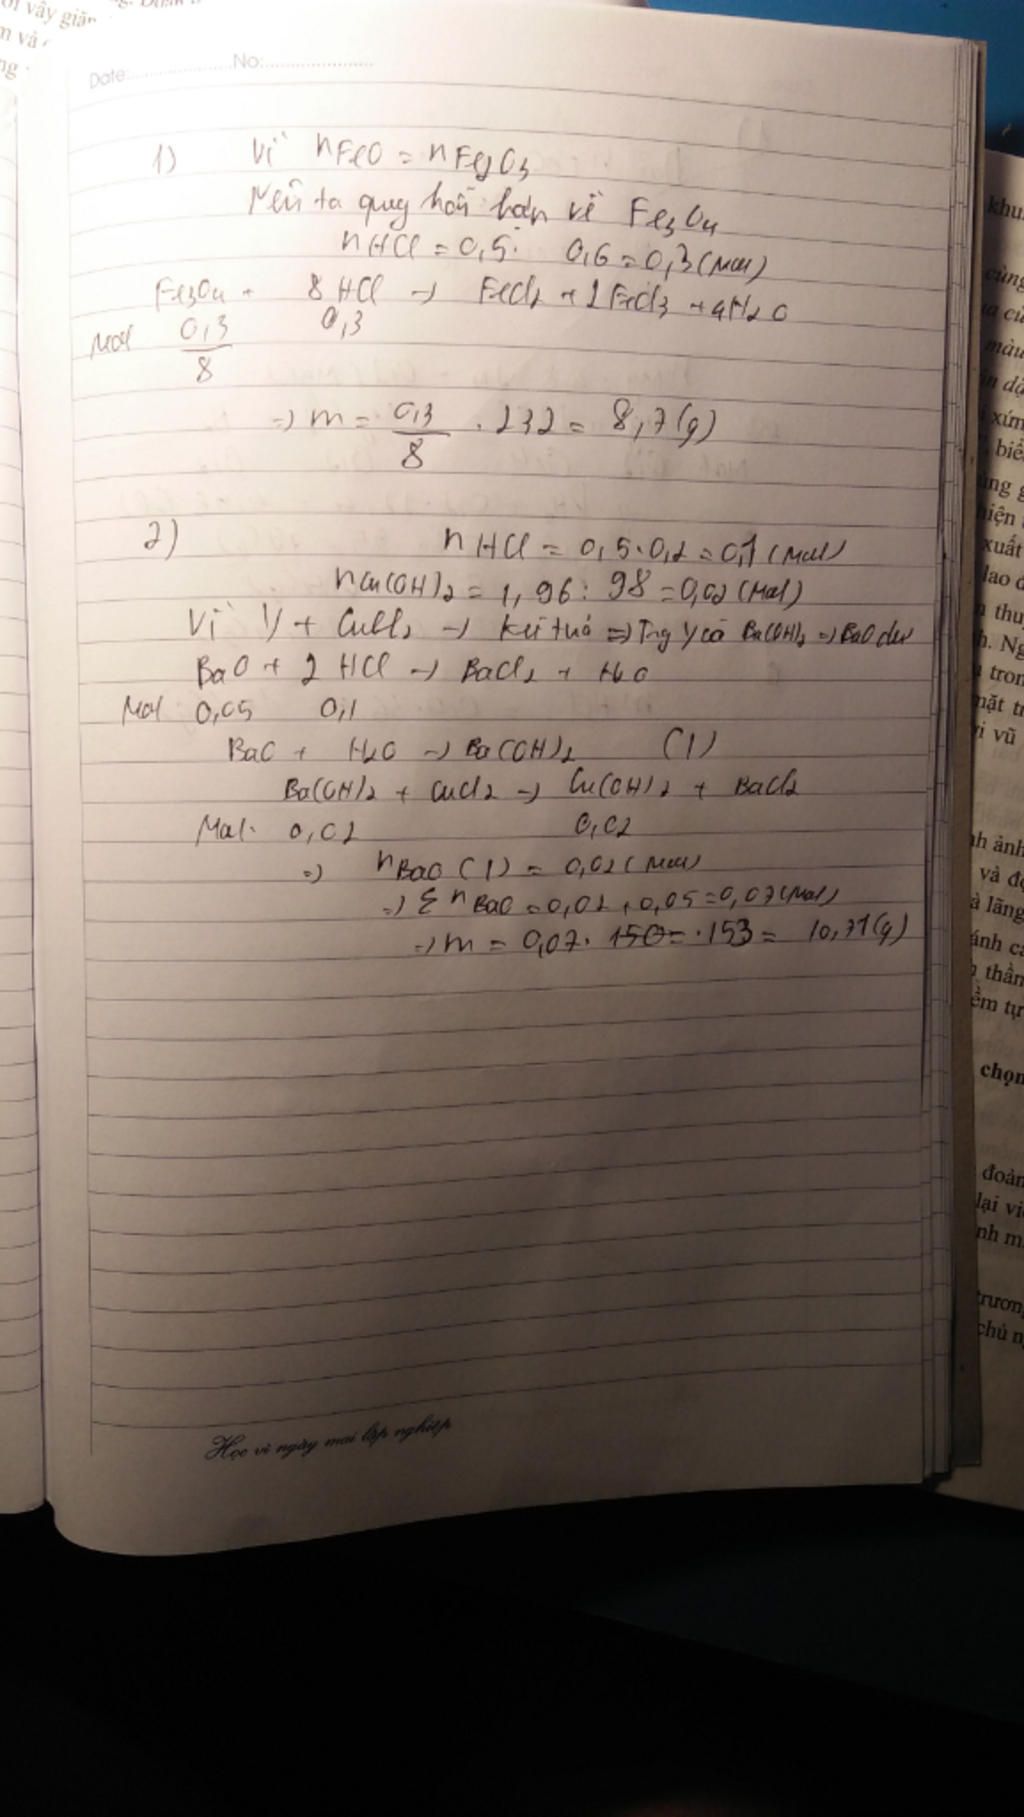 Date:..................No:....................
1) Vì nFeO = nFe2O3
Nên ta quy hoá hỗn hợp về Fe3O4
nHCl = 0,5. 0,6 = 0,3 (Mol)
Fe3O4 + 8HCl → FeCl2 + 2FeCl3 + 4H2O
Mol 0,3/8 0,3
=> m = 0,3/8 . 232 = 8,7 (g)
2) nHCl = 0,5.0,2 = 0,1 (Mol)
nCu(OH)2 = 1,96 : 98 = 0,02 (Mol)
Vì Y + CuCl2 → Kết tủa => Trg Y có Ba(OH)2 => BaO dư
BaO + 2HCl → BaCl2 + H2O
Mol 0,05 0,1
BaO + H2O → Ba(OH)2 (1)
Ba(OH)2 + CuCl2 → Cu(OH)2 + BaCl2
Mol: 0,02 0,02
=> nBaO (1) = 0,02 (Mol)
=> Σ nBaO = 0,02 + 0,05 = 0,07 (Mol)
=> m = 0,07. 150 = .153 = 10,71 (g)
Học vì ngày mai lập nghiệp
khu
cùng
màu
xứn
biể
ùng g
hiện
xuất
lao đ
thu
h. Ng
tron
mặt tr
vũ
nh ảnh
và đọ
à lãng
ánh cá
thần
ềm tự
chọn
đoàn
lại vi
nh m
trươn
chủ n